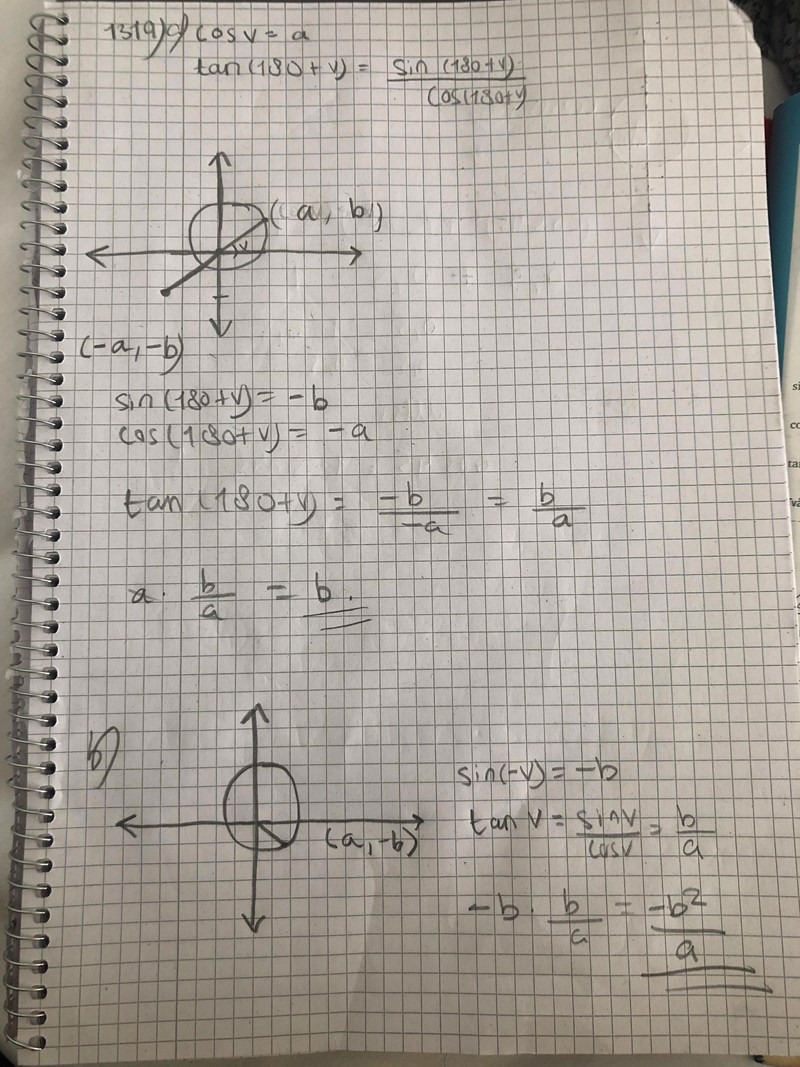 1319) a) cos v = a
tan(180+v) = sin(180+v)/cos(180+v)
(a, b)
v
(-a, -b)
sin(180+v) = -b
cos(180+v) = -a
tan(180+v) = -b/-a = b/a
a · b/a = b.
b)
(a, -b)
sin(-v) = -b
tan v = sin v/cos v = b/a
-b · b/a = -b²/a